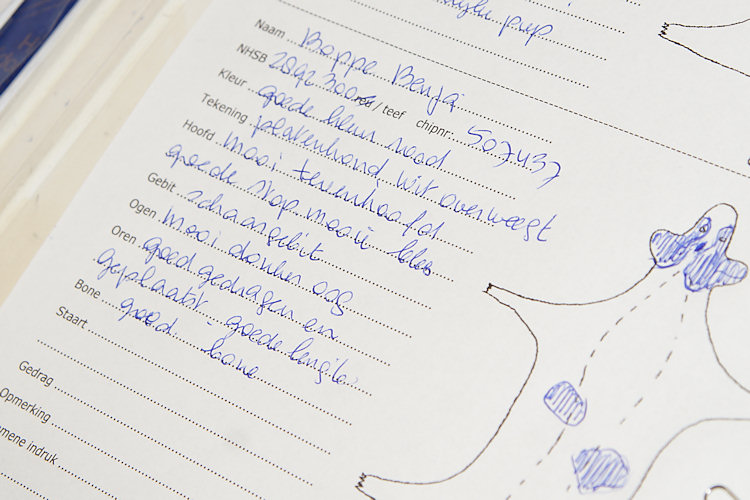 pup
Naam Boppe Benja
NHSB 2892300 reu / teef chipnr: 507437
Kleur goede kleur rood
Tekening platenhond wit overweegt
Hoofd mooi tevenhoofd
goede stop mooie bles
Gebit schaargebit
Ogen mooi donker oog
Oren goed gedragen en
geplaatst - goede lengte
Bone goed bone
Staart
Gedrag
Opmerking
mene indruk